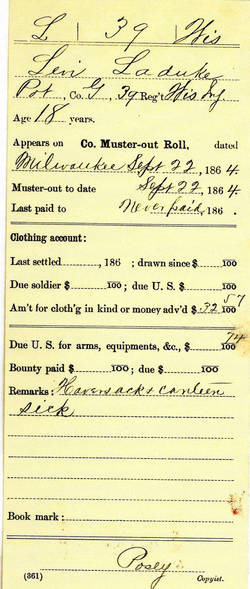 L | 39 | Wis
Levi Laduke
Pvt, Co. G, 39 Reg't Wis Inf
Age 18 years.
Appears on Co. Muster-out Roll, dated
Milwaukee Sept 22, 1864.
Muster-out to date Sept 22, 1864.
Last paid to Never paid, 186 .
Clothing account:
Last settled , 186 ; drawn since $ 100
Due soldier $ 100; due U. S. $ 100
Am't for cloth'g in kind or money adv'd $ 32 57/100
Due U. S. for arms, equipments, &c., $ 74/100
Bounty paid $ 100; due $ 100
Remarks: Haversack & canteen
sick
Book mark:
Posey
(361) Copyist.